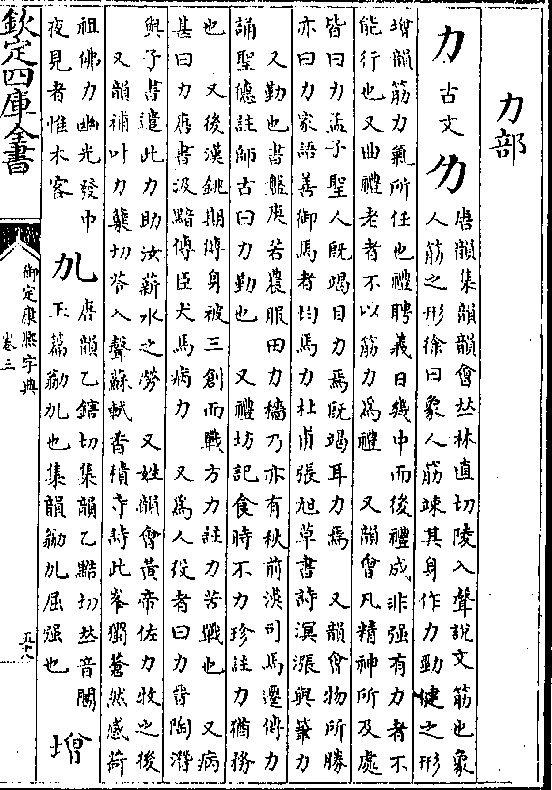 力部
力 古文
唐韻集韻韻會𠀤林直切陵入聲說文筋也象
人筋之形徐曰象人筋竦其身作力勁健之形
增韻筋力氣所任也禮聘義日幾中而後禮成非强有力者不
能行也又曲禮老者不以筋力爲禮 又韻會凡精神所及處
皆曰力孟子聖人旣竭目力焉旣竭耳力焉 又韻會物所勝
亦曰力家語善御馬者均馬力杜甫張旭草書詩溟漲與筆力
又勤也書盤庚若農服田力穡乃亦有秋前漢司馬遷傳力
誦聖德註師古曰力勤也 又禮坊記食時不力珍註力猶務
也 又後漢銚期傳身被三創而戰方力註力苦戰也 又病
甚曰力唐書汲黯傳臣犬馬病力 又爲人役者曰力晉陶潛
與子書遣此力助汝薪水之勞 又姓韻會黃帝佐力牧之後
又韻補叶力蘖切苓入聲蘇軾香積寺詩此峯獨蒼然感荷
祖佛力幽光發中
夜見者惟木客
劜
唐韻乙鎋切集韻乙黠切𠀤音閼
玉篇勜劜也集韻勜劜屈强也
增
欽定四庫全書
御定康熙字典
卷三
五十八